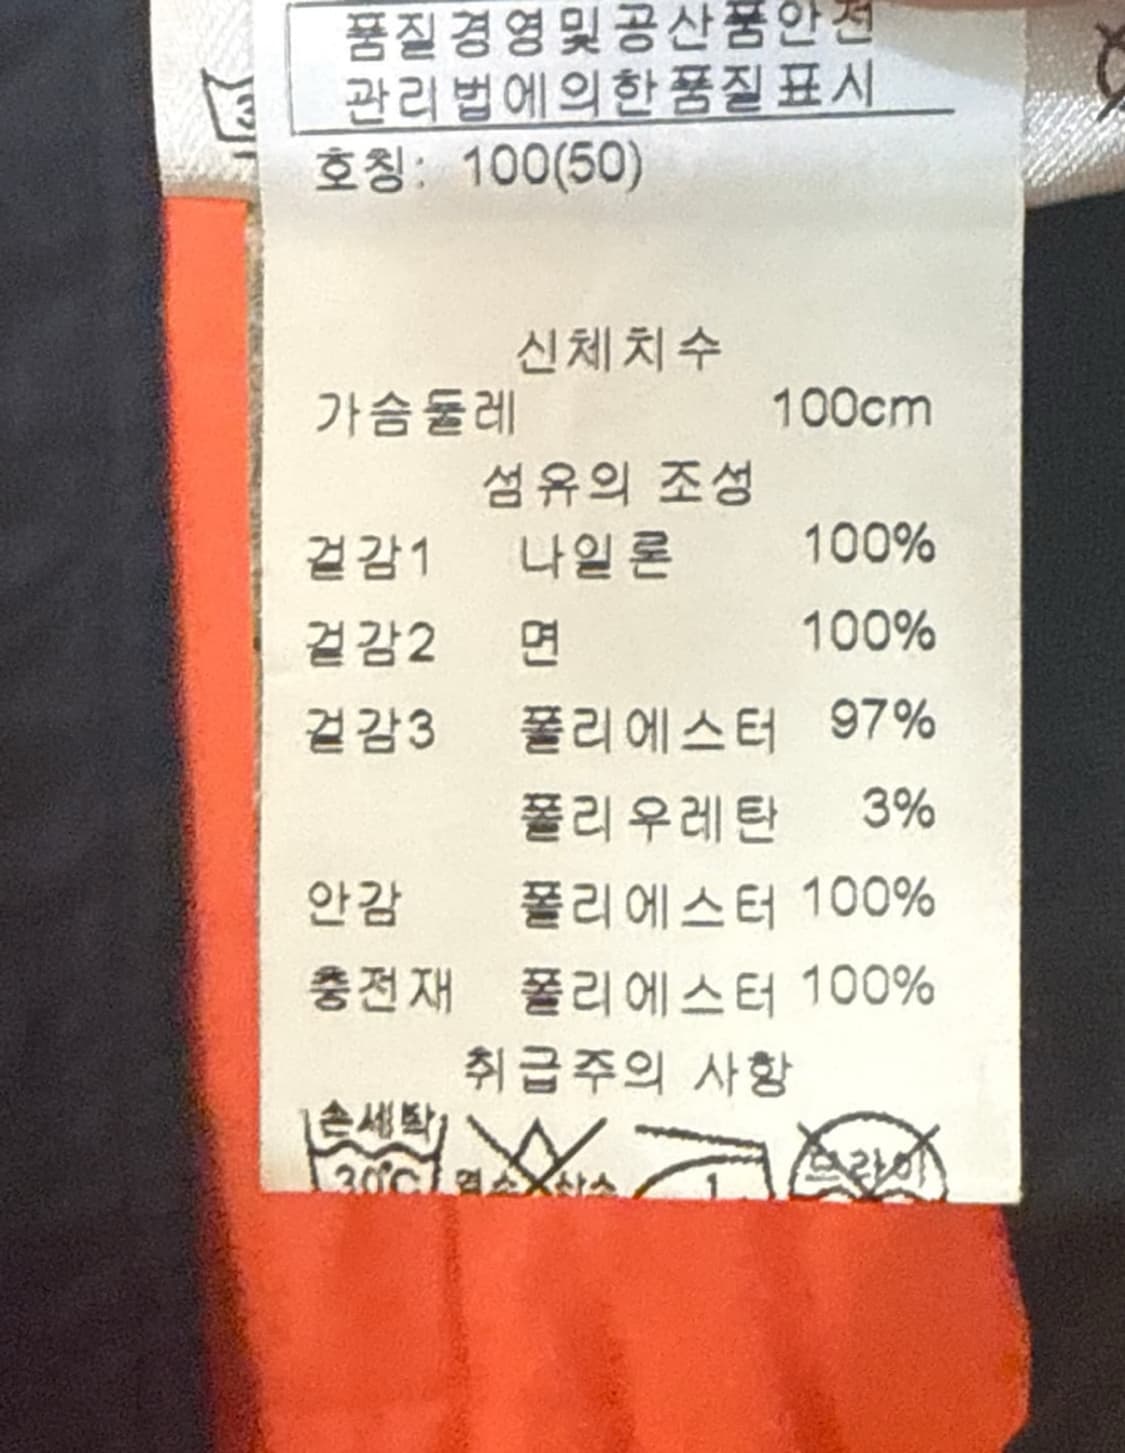 품질경영및공산품안전
관리법에의한품질표시
호칭: 100(50)
신체치수
가슴둘레 100cm
섬유의 조성
겉감1 나일론 100%
겉감2 면 100%
겉감3 폴리에스터 97%
폴리우레탄 3%
안감 폴리에스터 100%
충전재 폴리에스터 100%
취급주의 사항
손세탁
30℃ 염소 산소 1 드라이